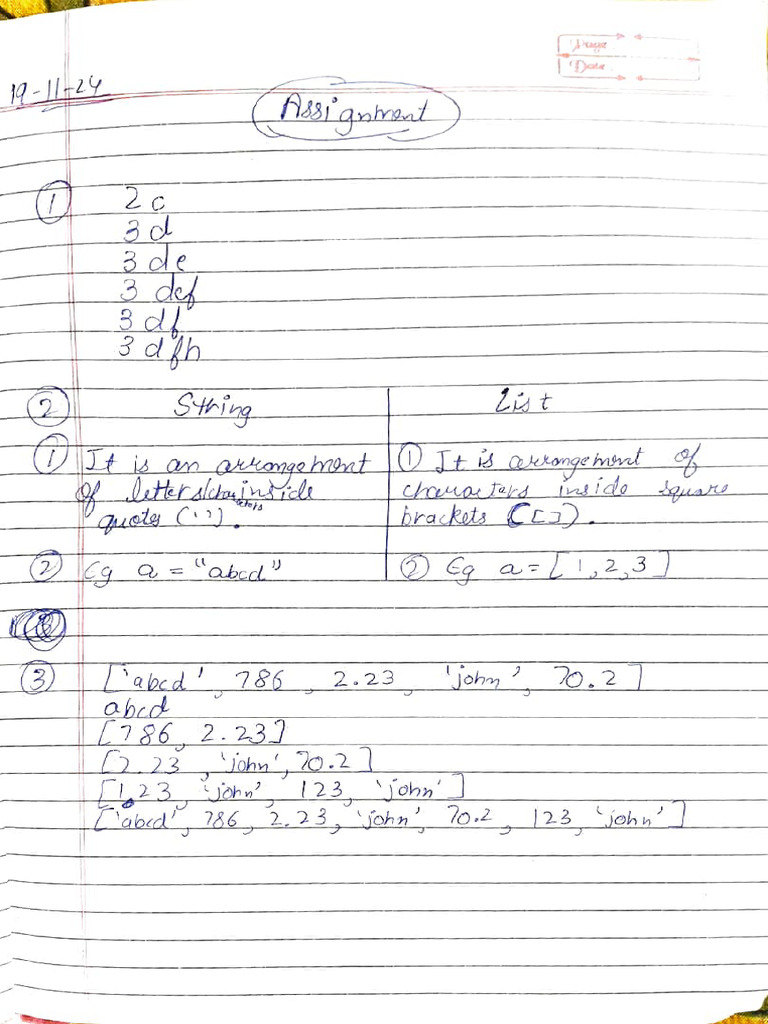 Page
Date
19-11-24
Assignment
① 2 c
3 d
3 de
3 def
3 df
3 dfh
② String List
① It is an arrangement ① It is arrangement of
of letters/characters inside characters inside square
quotes (' '). brackets ([]).
② Eg a = "abcd" ② Eg a = [1, 2, 3]
③ ['abcd', 786, 2.23, 'john', 70.2]
abcd
[786, 2.23]
[2.23, 'john', 70.2]
[123, 'john', 123, 'john']
['abcd', 786, 2.23, 'john', 70.2, 123, 'john']